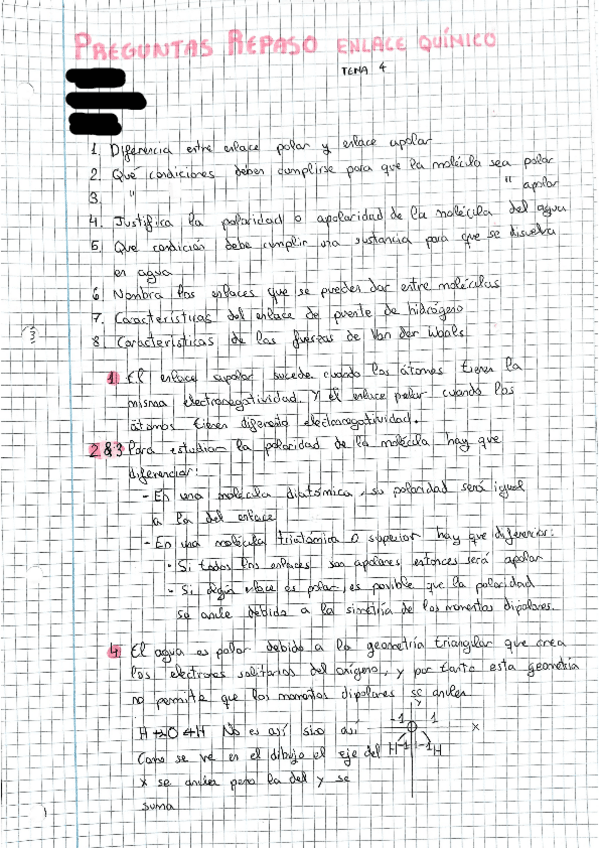 PREGUNTAS REPASO ENLACE QUÍNICO
TEMA 4
1. Diferencia entre enlace polar y enlace apolar
2. Qué condiciones deben cumplirse para que la molécula sea polar
3. " " apolar
4. Justifica la polaridad o apolaridad de la molécula del agua
5. Que condición debe cumplir una sustancia para que se disuelva
en agua
6. Nombra los enlaces que se pueden dar entre moléculas
7. Características del enlace de puente de hidrógeno
8. Características de las fuerzas de Van der Waals
1 El enlace apolar sucede cuando los átomos tienen la
misma electronegatividad. Y el enlace polar cuando los
átomos tienen diferente electronegatividad.
2&3 Para estudiar la polaridad de la molécula hay que
diferenciar:
- En una molécula diatómica, su polaridad será igual
a la del enlace
- En una molécula triatómica o superior hay que diferenciar:
- Si todos los enlaces son apolares entonces será apolar
- Si algún enlace es polar, es posible que la polaridad
se anule debido a la simetría de los momentos dipolares.
4 El agua es polar debido a la geometría triangular que crea
los electrones solitarios del oxígeno, y por tanto esta geometría
no permite que los momentos dipolares se anulen
H O H No es así sino así
Como se ve en el dibujo el eje del
x se anula pero la del y se
suma
y
-1 1
x
H -1 -1 H